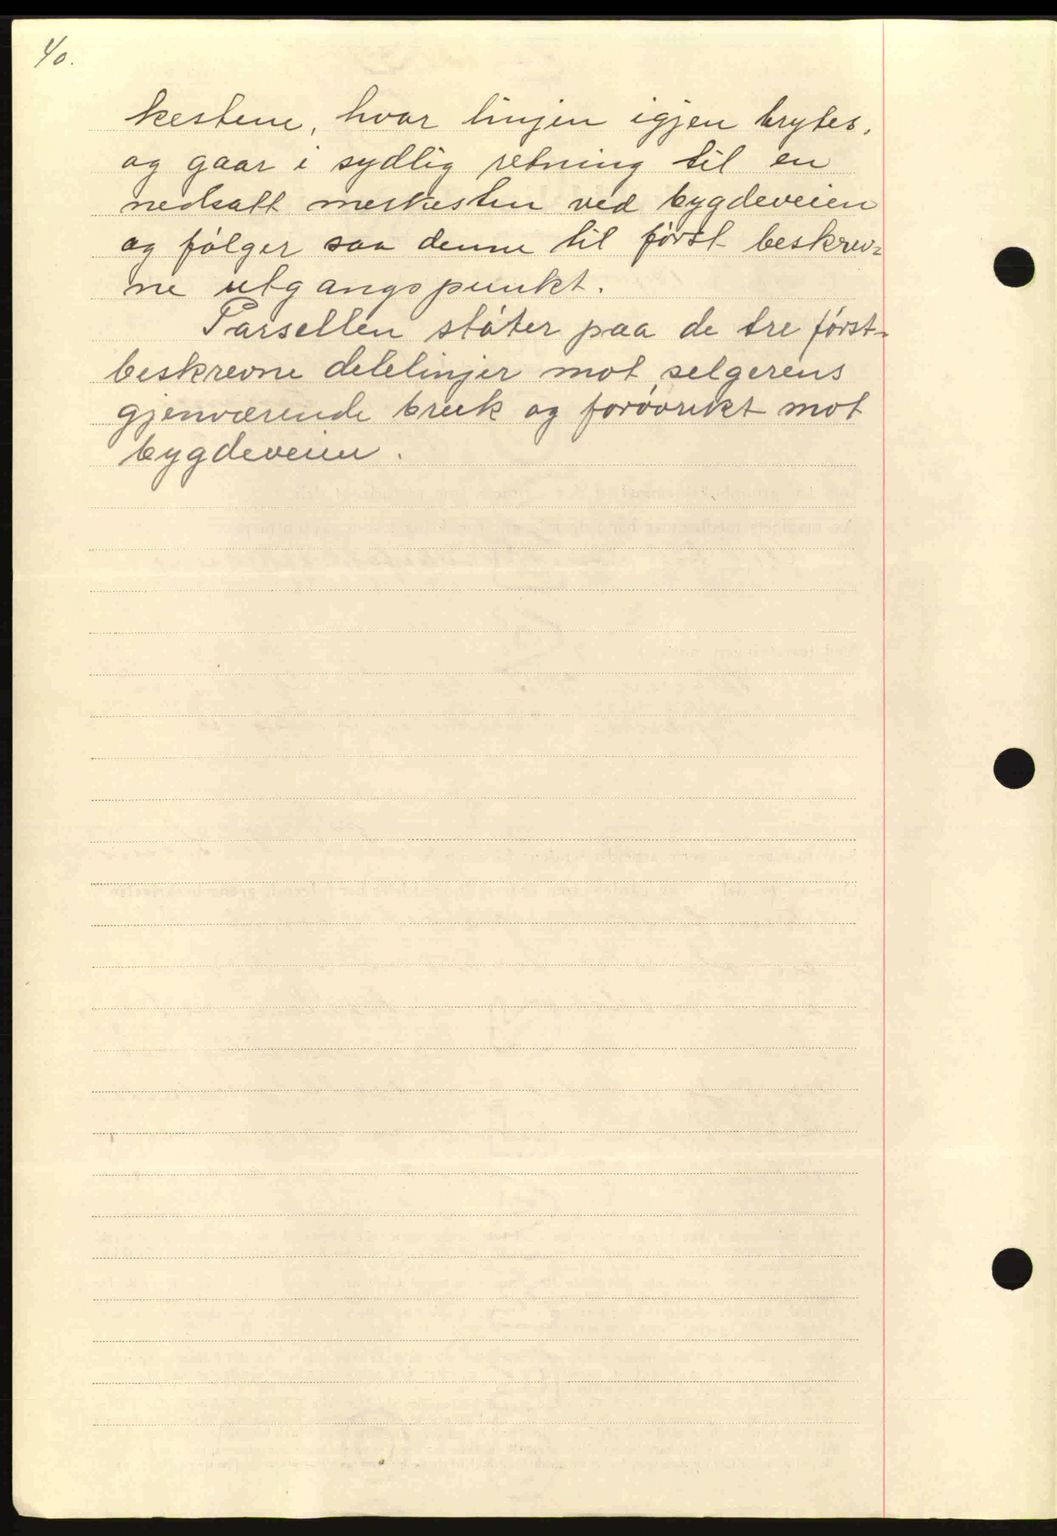 40.
kestene, hvor linjen igjen brytes,
og gaar i sydlig retning til en
nedsatt merkesten ved bygdeveien
og følger saa denne til først beskrev=
ne utgangspunkt.
Parsellen støter paa de tre først-
beskrevne delelinjer mot selgerens
gjenværende bruk og forøvrikt mot
bygdeveien.